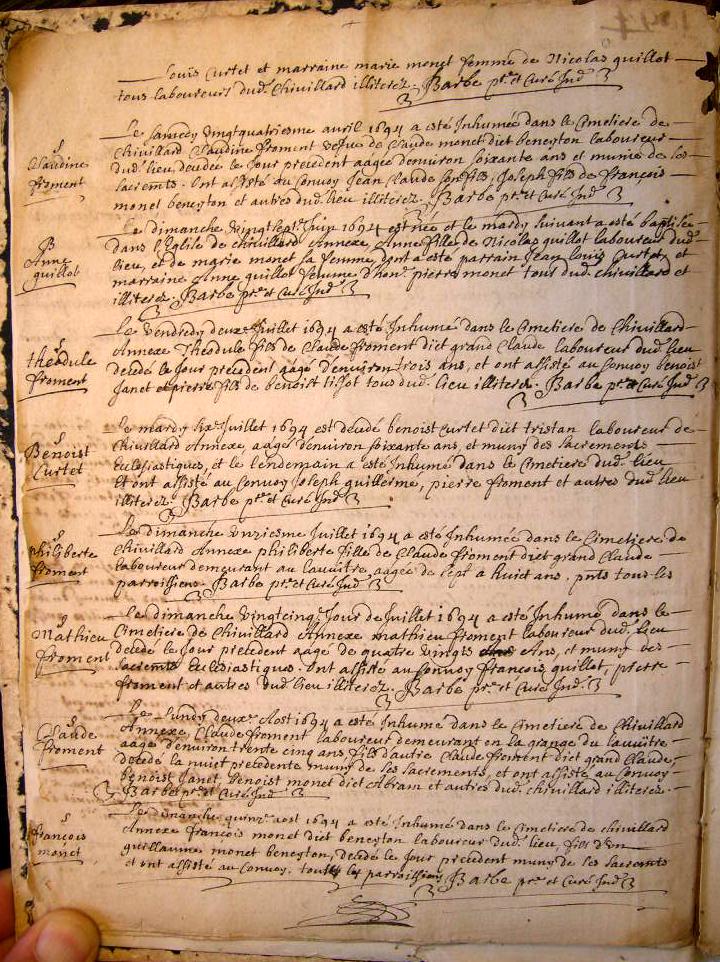 Louis Curtet et marraine marie monet femme de Nicolas quillot
tous laboureurs dud. Chivillard illiterez. Barbe ptre et Curé Ind
S
Claudine
froment
Le samedy vingtquatriesme avril 1694 a esté Inhumée dans le Cimetiere de
Chivillard Claudine froment vefve de Claude monet dict beneyton laboureur
dud. lieu, decedee le Jour precedent aagée denviron soixante ans et munie de ses
sacremts. Ont assisté au Convoy Jean Claude son fils, Joseph fils de François
monet beneyton et autres dud. lieu illiterez. Barbe ptre et Curé Ind
B
Anne
quillot
Le dimanche vingt sept Juin 1694 est née et le mardy suivant a esté baptisée
dans l'Eglise de chivillard Annexe, Anne fille de Nicolas quillot laboureur dud.
lieu, et de marie monet sa femme, dont a esté parrain Jean Louis Curtet, et
marraine Anne quillot femme d'hon. pierre monet tous dud. chivillard et
illiterez. Barbe ptre et Curé Ind
S
theodule
froment
Le Vendredy deux Juillet 1694 a esté Inhumé dans le Cimetiere de Chivillard
Annexe Theodule fils de Claude froment dict grand Claude laboureur dud. lieu
decedé le Jour precedent aagé d'environ trois ans, et ont assisté au Convoy benoist
Janet et pierre fils de benoist tissot tous dud. lieu illiterez. Barbe ptre et Curé Ind
S
Benoist
Curtet
Le mardy six Juillet 1694 est decedé benoist Curtet dict tristan laboureur de
Chivillard Annexe, aagé d'environ soixante ans, et muny des Sacrements
Ecclesiastiques, et le lendemain a esté Inhumé dans le Cimetiere dud. lieu
Et ont assisté au Convoy Joseph guillerme, pierre froment et autres dud. lieu
illiterez. Barbe ptre et Curé Ind
S
philiberte
froment
Le dimanche unziesme Juillet 1694 a esté Inhumée dans le Cimetiere de
Chivillard Annexe philiberte fille de Claude froment dict grand Claude
laboureur demeurant au lauuitre, aagée de sept a huict ans. pnts tous les
parroissiens. Barbe ptre et Curé Ind
S
Mathieu
froment
Le dimanche vingtcinq Jour de Juillet 1694 a esté Inhumé dans le
Cimetiere de Chivillard Annexe mathieu froment laboureur dud. lieu
decedé le Jour precedent aagé de quatre vingts Ans, et muny des
Sacremts Ecclesiastiques. Ont assisté au Convoy François quillot, pierre
froment et autres dud. lieu illiterez. Barbe ptre et Curé Ind.
S
Claude
froment
Le Lundy deux Aost 1694 a esté Inhumé dans le Cimetiere de Chivillard
Annexe, Claude froment laboureur demeurant en la grange du lauuitre
aagé d'environ trente cinq ans, fils d'autre Claude froment dict grand Claude,
decedé la nuict precedente muny de ses Sacrements, et ont assisté au Convoy
benoist Janet, Benoist monet dict Abram et autres dud. chivillard illiterez.
Barbe ptre et Curé Ind
S
François
monet
Le dimanche quinze aost 1694 a esté Inhumé dans le Cimetiere de chivillard
Annexe François monet dict beneyton laboureur dud. lieu, fils d'un
guillaume monet beneyton, decedé le Jour precedent muny de ses Sacremts
et ont assisté au Convoy. tous les parroissiens. Barbe ptre et Curé Ind